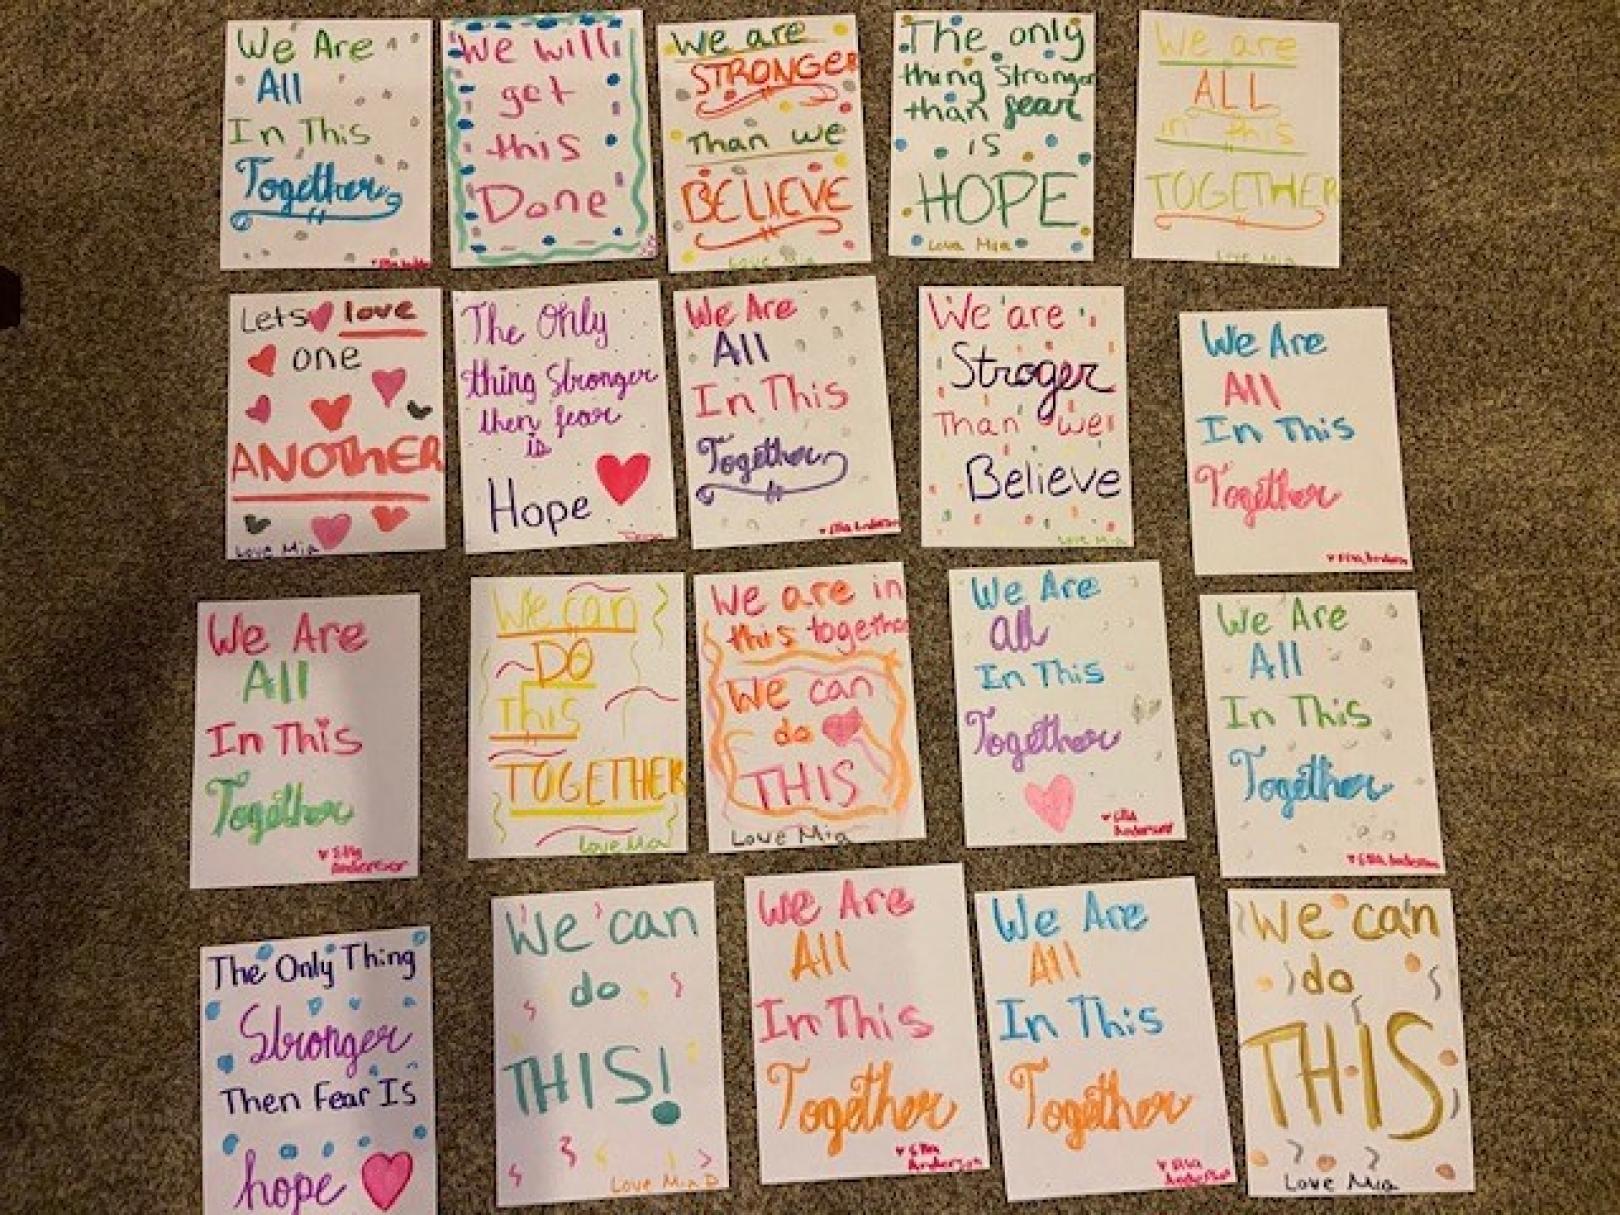 We Are
All
In This
Together
We will
get
this
Done
We are
STRONGER
Than we
BELIEVE
Love Mia
The only
thing Stronger
than fear
is
HOPE
Love Mia
We are
ALL
in this
TOGETHER
Love Mia
Lets love
one
ANOTHER
Love Mia
The Only
thing Stronger
then fear
is
Hope
We Are
All
In This
Together
Ella Anderson
We are
Stroger
Than we
Believe
Love Mia
We Are
All
In This
Together
Ella Anderson
We Are
All
In This
Together
Ella
Anderson
We can
DO
This
TOGETHER
Love Mia
We are in
this together
We can
do
THIS
Love Mia
We Are
all
In This
Together
Ella
Anderson
We Are
All
In This
Together
Ella Anderson
The Only Thing
Stronger
Then Fear Is
hope
We can
do
THIS!
Love Mia D
We Are
All
In This
Together
Ella
Anderson
We Are
All
In This
Together
Ella
Anderson
We can
do
THIS
Love Mia